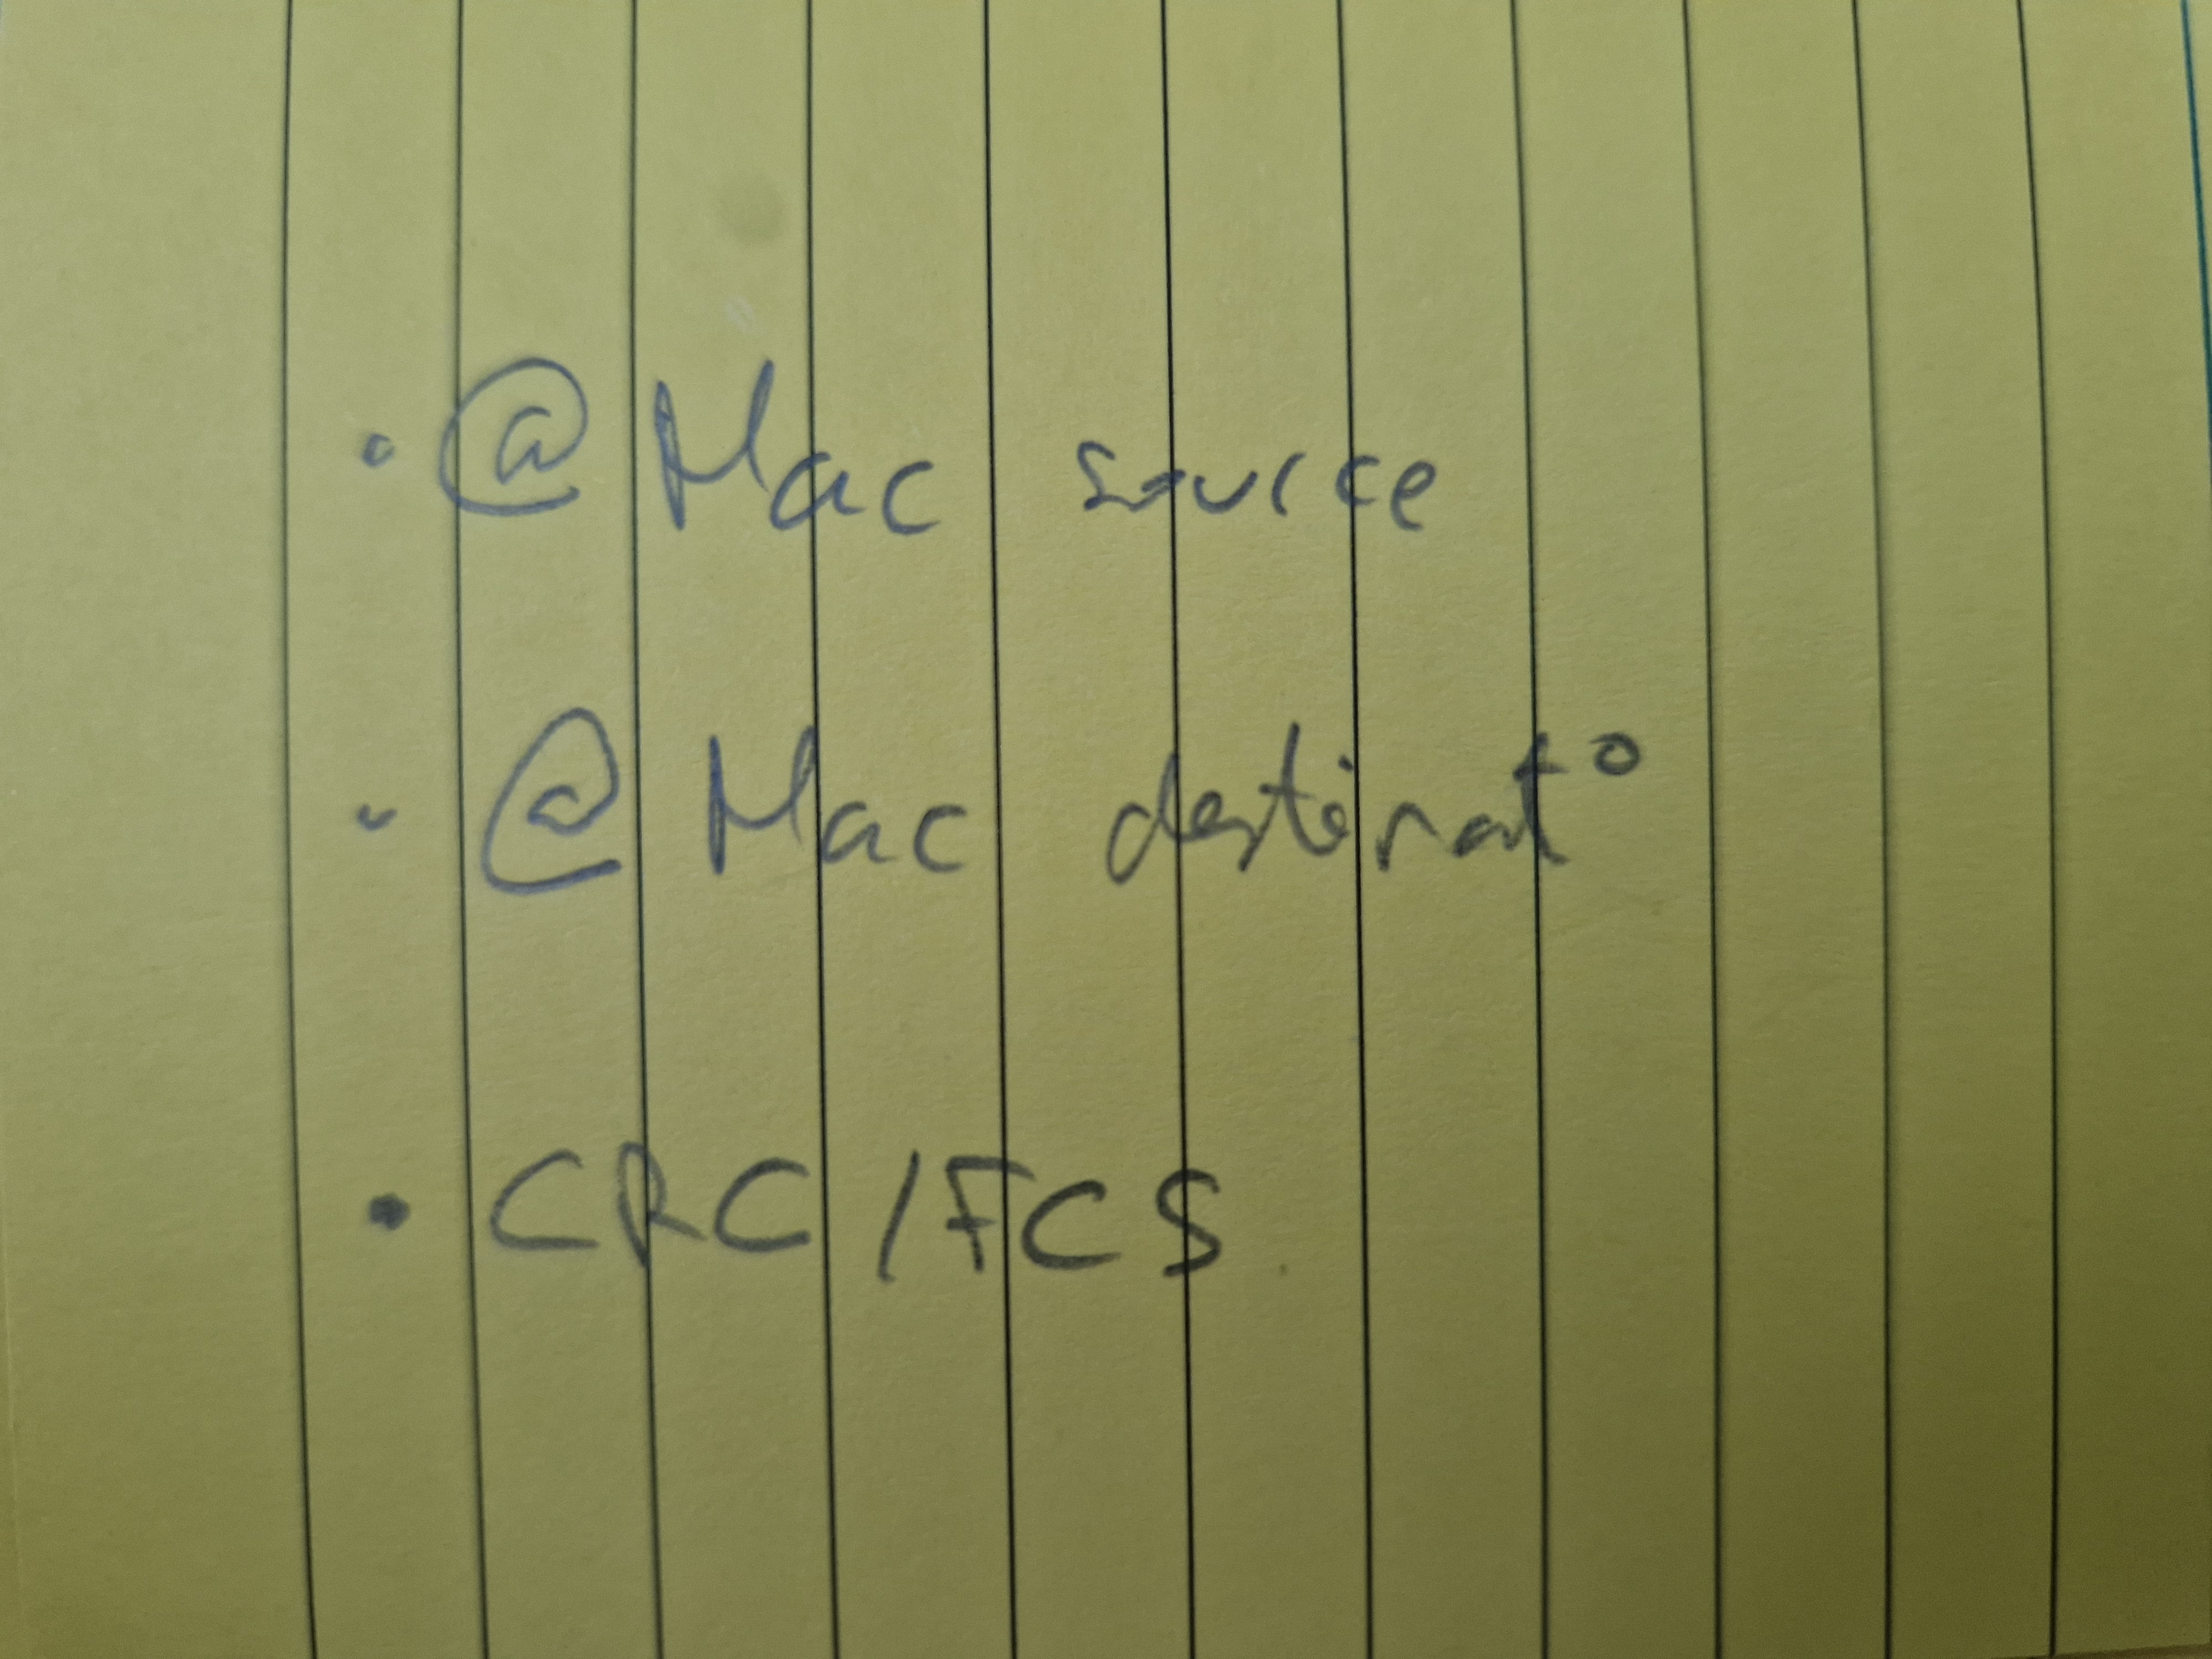 • @ Mac source
• @ Mac destinat°
• CRC / FCS